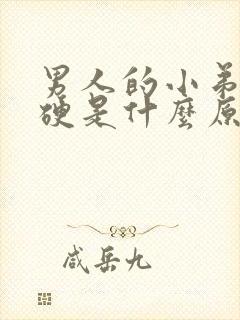 男人的小弟
硬是什麼原
咸岳九